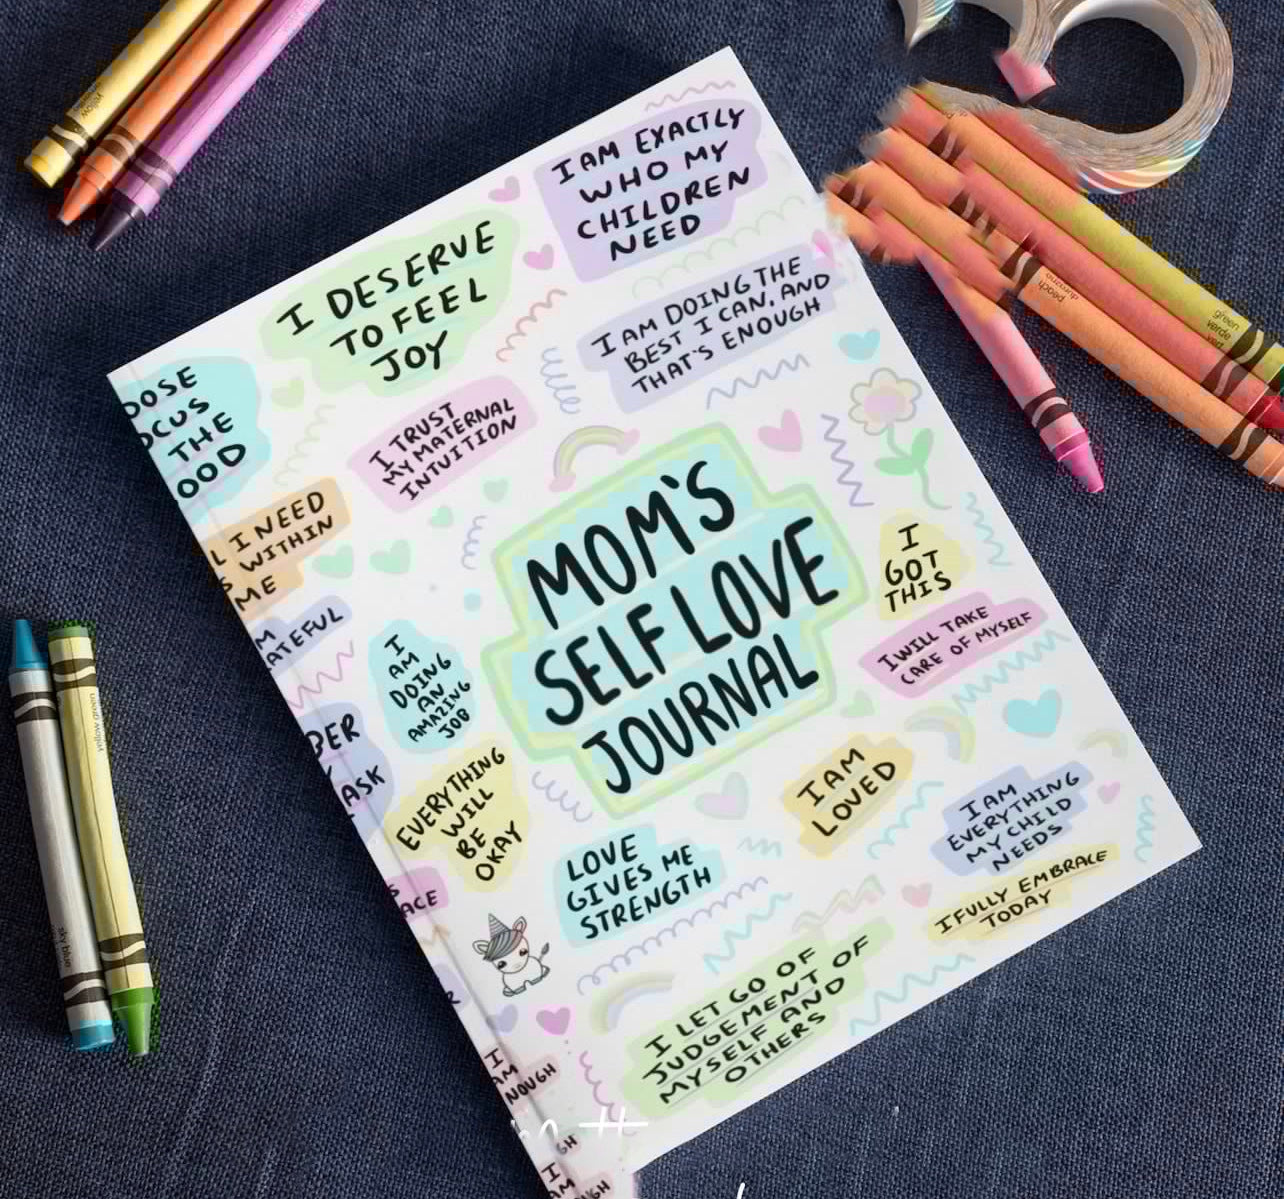 I AM EXACTLY
WHO MY
CHILDREN
NEED
I DESERVE
TO FEEL
JOY
I AM DOING THE
BEST I CAN, AND
THAT'S ENOUGH
OOSE
OCUS
THE
OOD
I TRUST
MY MATERNAL
INTUITION
L I NEED
S WITHIN
ME
MOM'S
SELF LOVE
JOURNAL
I
GOT
THIS
I WILL TAKE
CARE OF MYSELF
M
ATEFUL
I
AM
DOING
AN
AMAZING
JOB
BER
ASK
EVERYTHING
WILL
BE
OKAY
I AM
LOVED
I AM
EVERYTHING
MY CHILD
NEEDS
LOVE
GIVES ME
STRENGTH
I FULLY EMBRACE
TODAY
S
ACE
R
I LET GO OF
JUDGEMENT OF
MYSELF AND
OTHERS
I
AM
NOUGH
GH
I
AM
UGH
yellow
peach
durazno
green
verde
vert
yellow green
sky blue